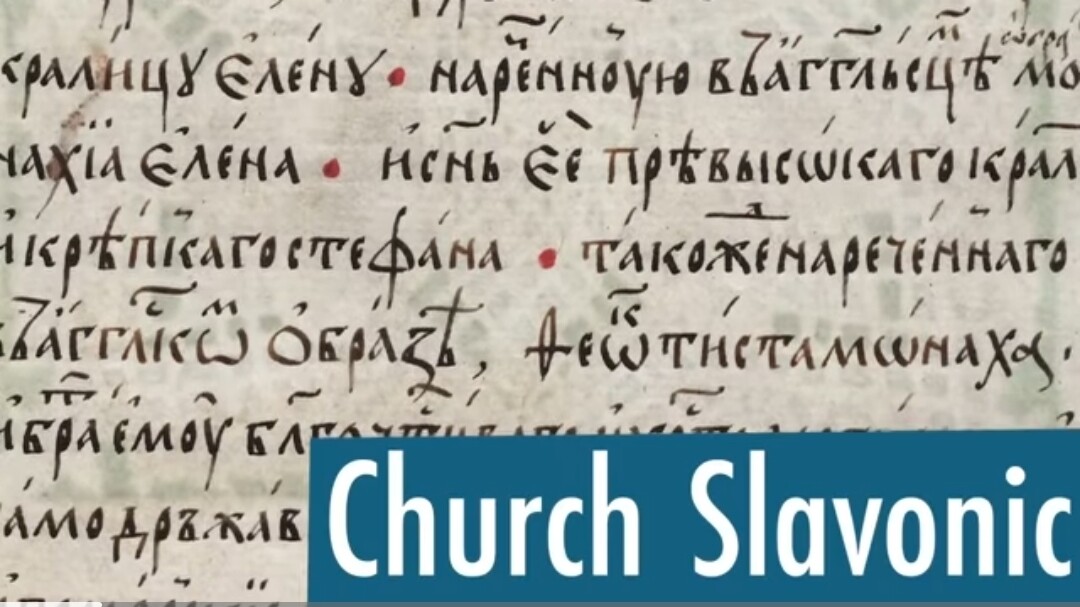 кралицꙋ єленꙋ • нареннꙋю въ аггльсцѣ мо
нахїа єлена • и сн҃ь єе прѣвысѡкаго крал
и крѣпкаго стефана • такоже нареченнаго
въ аггл҇кѡⷨ ѻбразѣ, ѳеѡⷦтиста мѡнаха.
и бра емоу
амодръжав
Church Slavonic